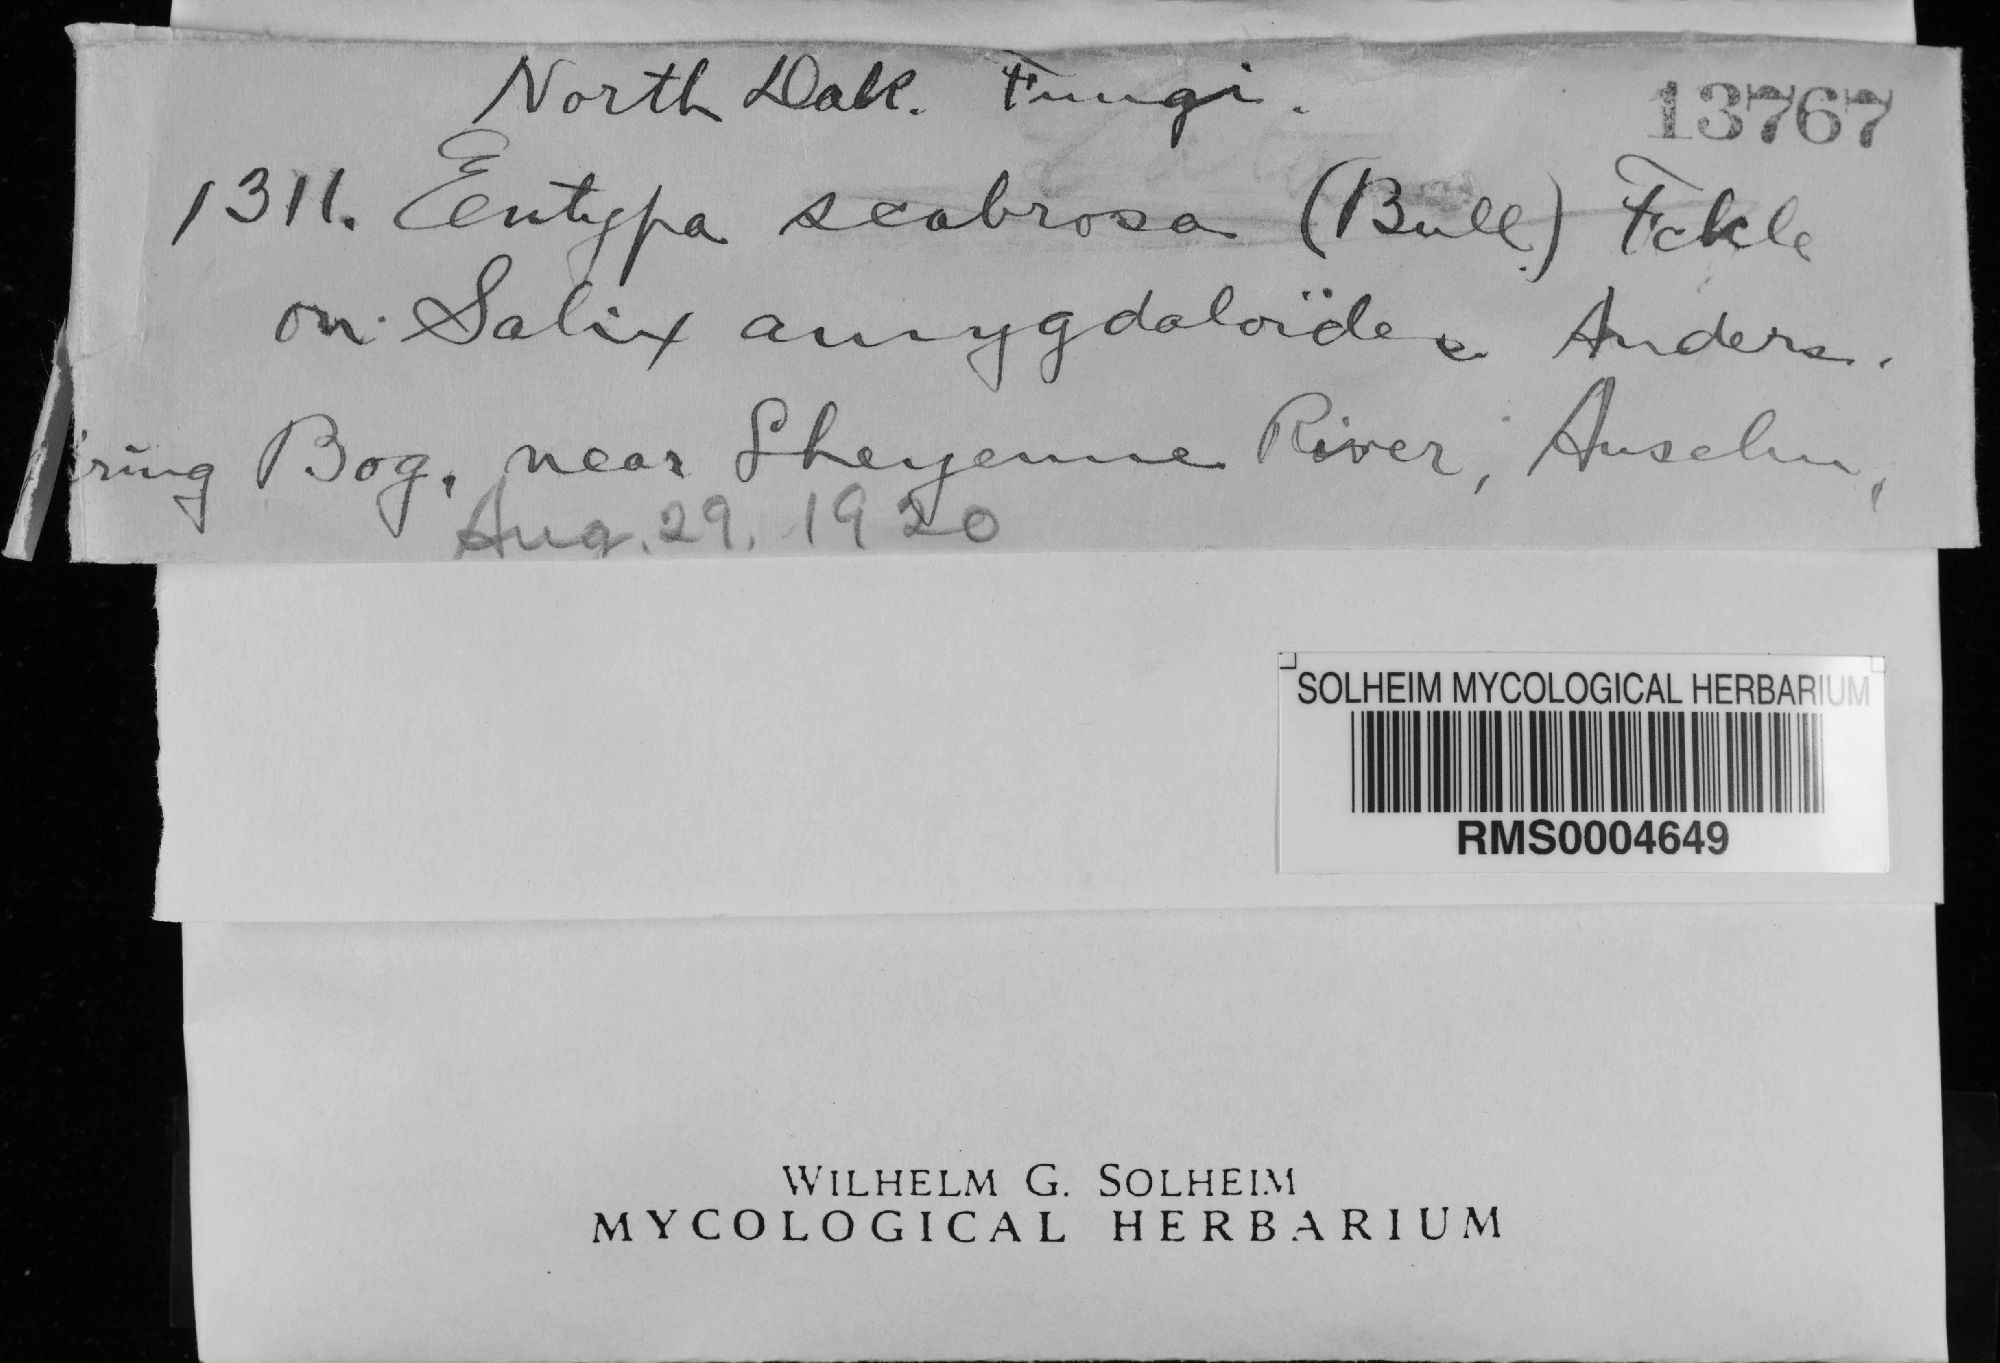 North Dak. Fungi.
13767
1311. Eutypa scabrosa (Bull.) Fckle
on Salix amygdaloïdes Anders.
ring Bog, near Sheyenne River, Anselm,
Aug. 29. 1920
SOLHEIM MYCOLOGICAL HERBARIUM
RMS0004649
WILHELM G. SOLHEIM
MYCOLOGICAL HERBARIUM